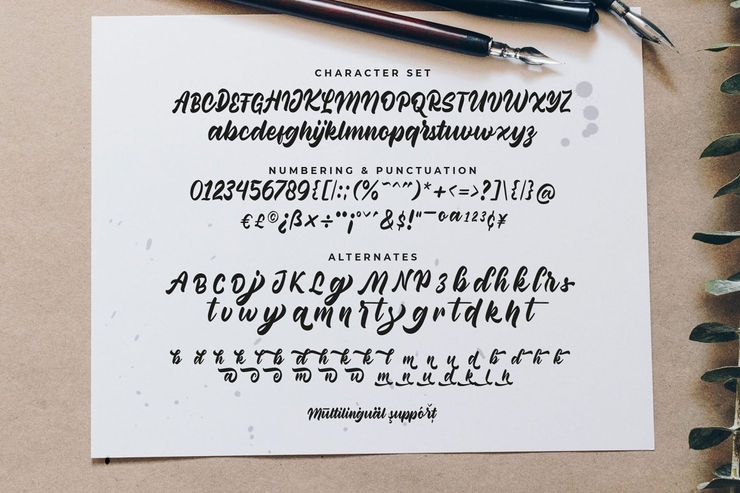 CHARACTER SET
ABCDEFGHIJKLMNOPQRSTUVWXYZ
abcdefghijklmnopqrstuvwxyz
NUMBERING & PUNCTUATION
0123456789{[|:;(%~^˜")*+<=>?]\{|}@
€£©¿ßx÷¨"¡°ˇ˘&$!"¯ºª¹²³¢¥
ALTERNATES
ABCDj JKLg MNP3bdhklrs
tvwy qmnrtsygrtdkht
b d h k t b d h k k l m n u d b d h k
a o o m n w m n u d k l h
Multilingual support